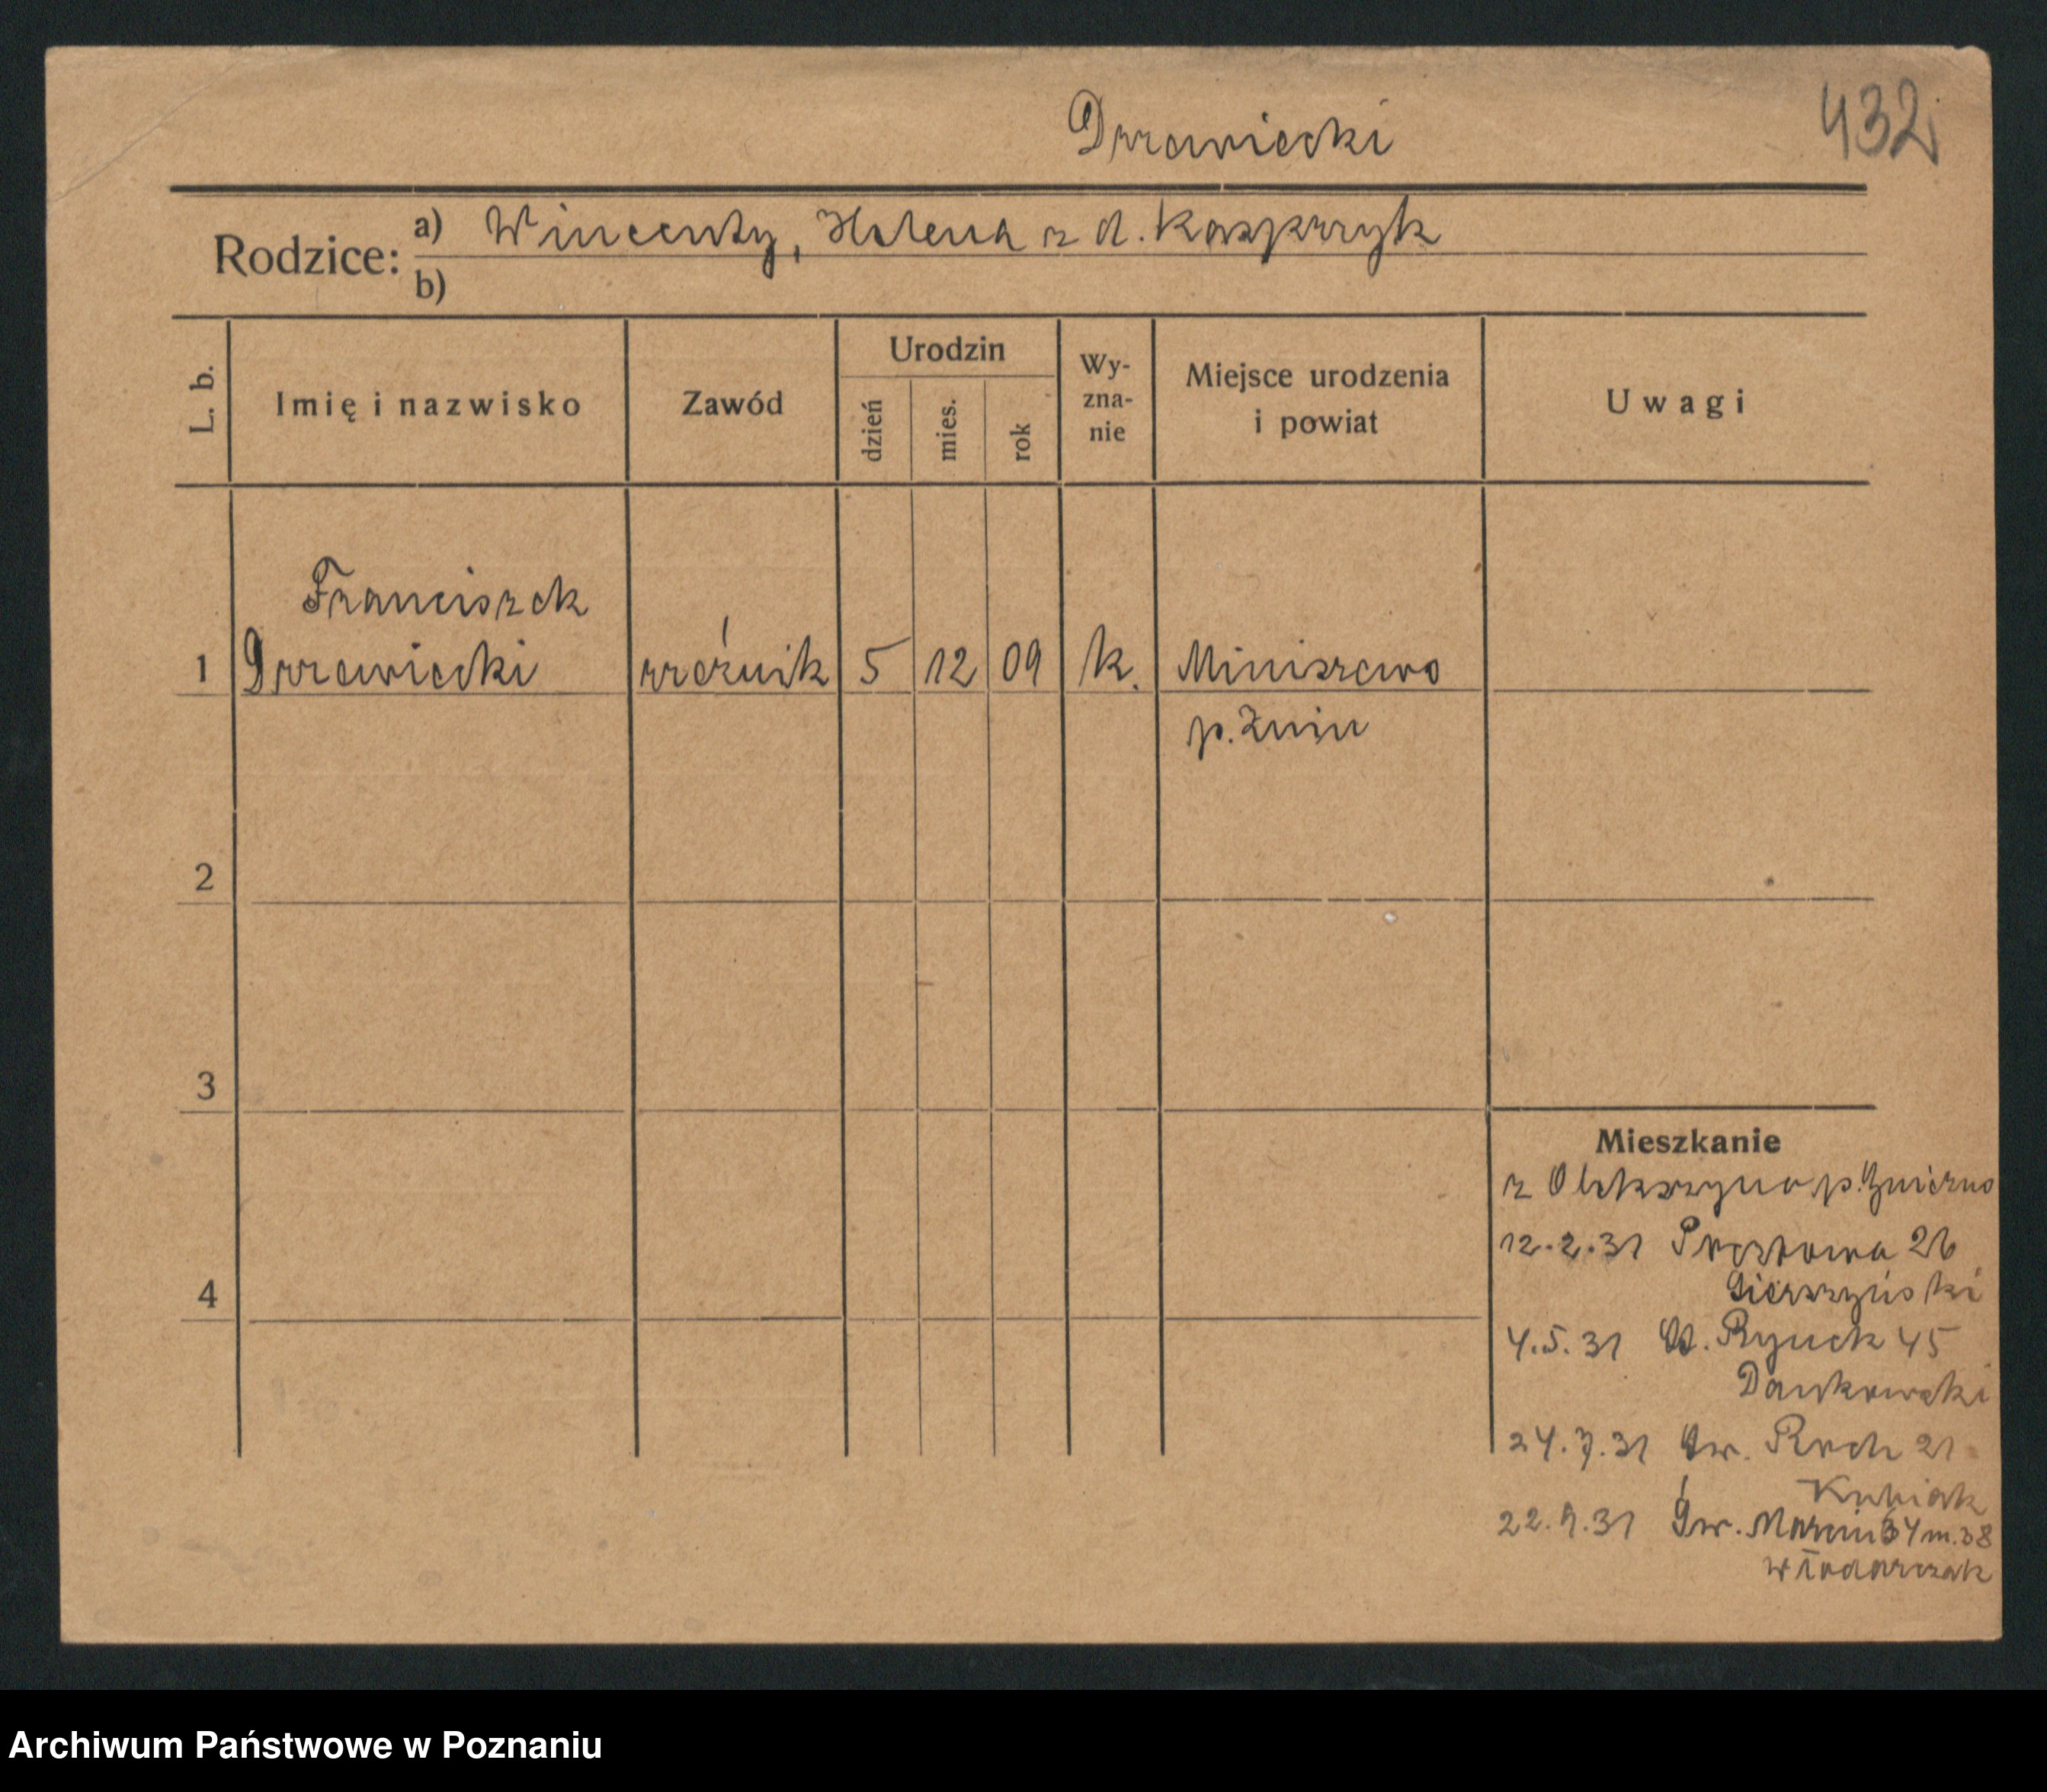 Drzewiecki
432
Rodzice: a) Wincenty, Helena z d. Kasprzyk
b)
L. b. Imię i nazwisko Zawód Urodzin dzień mies. rok Wy-zna-nie Miejsce urodzenia i powiat Uwagi
Franciszek
1 Drzewiecki rzeźnik 5 12 09 k. Miniszewo
p. Żnin
2
3
Mieszkanie
z p. Gniezno
12.2.31 Pocztowa 26
4 Gierszyński
4.5.31 St. Rynek 45
Dankowski
24.7.31 Św. Roch 21
Kubiak
22.9.31 Św. Marcin 34 m. 38
Włodarczak
Archiwum Państwowe w Poznaniu